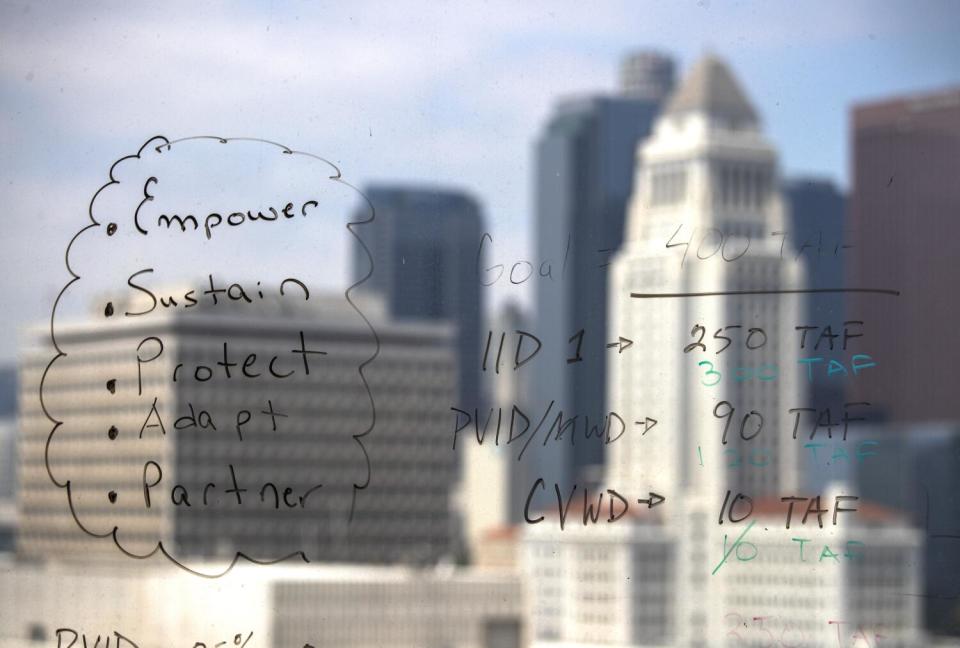 • Empower
• Sustain
• Protect
• Adapt
• Partner
Goal = 400 TAF
IID 1 → 250 TAF
300 TAF
PVID/MWD → 90 TAF
120 TAF
CVWD → 10 TAF
10 TAF
330 TAF
PVID